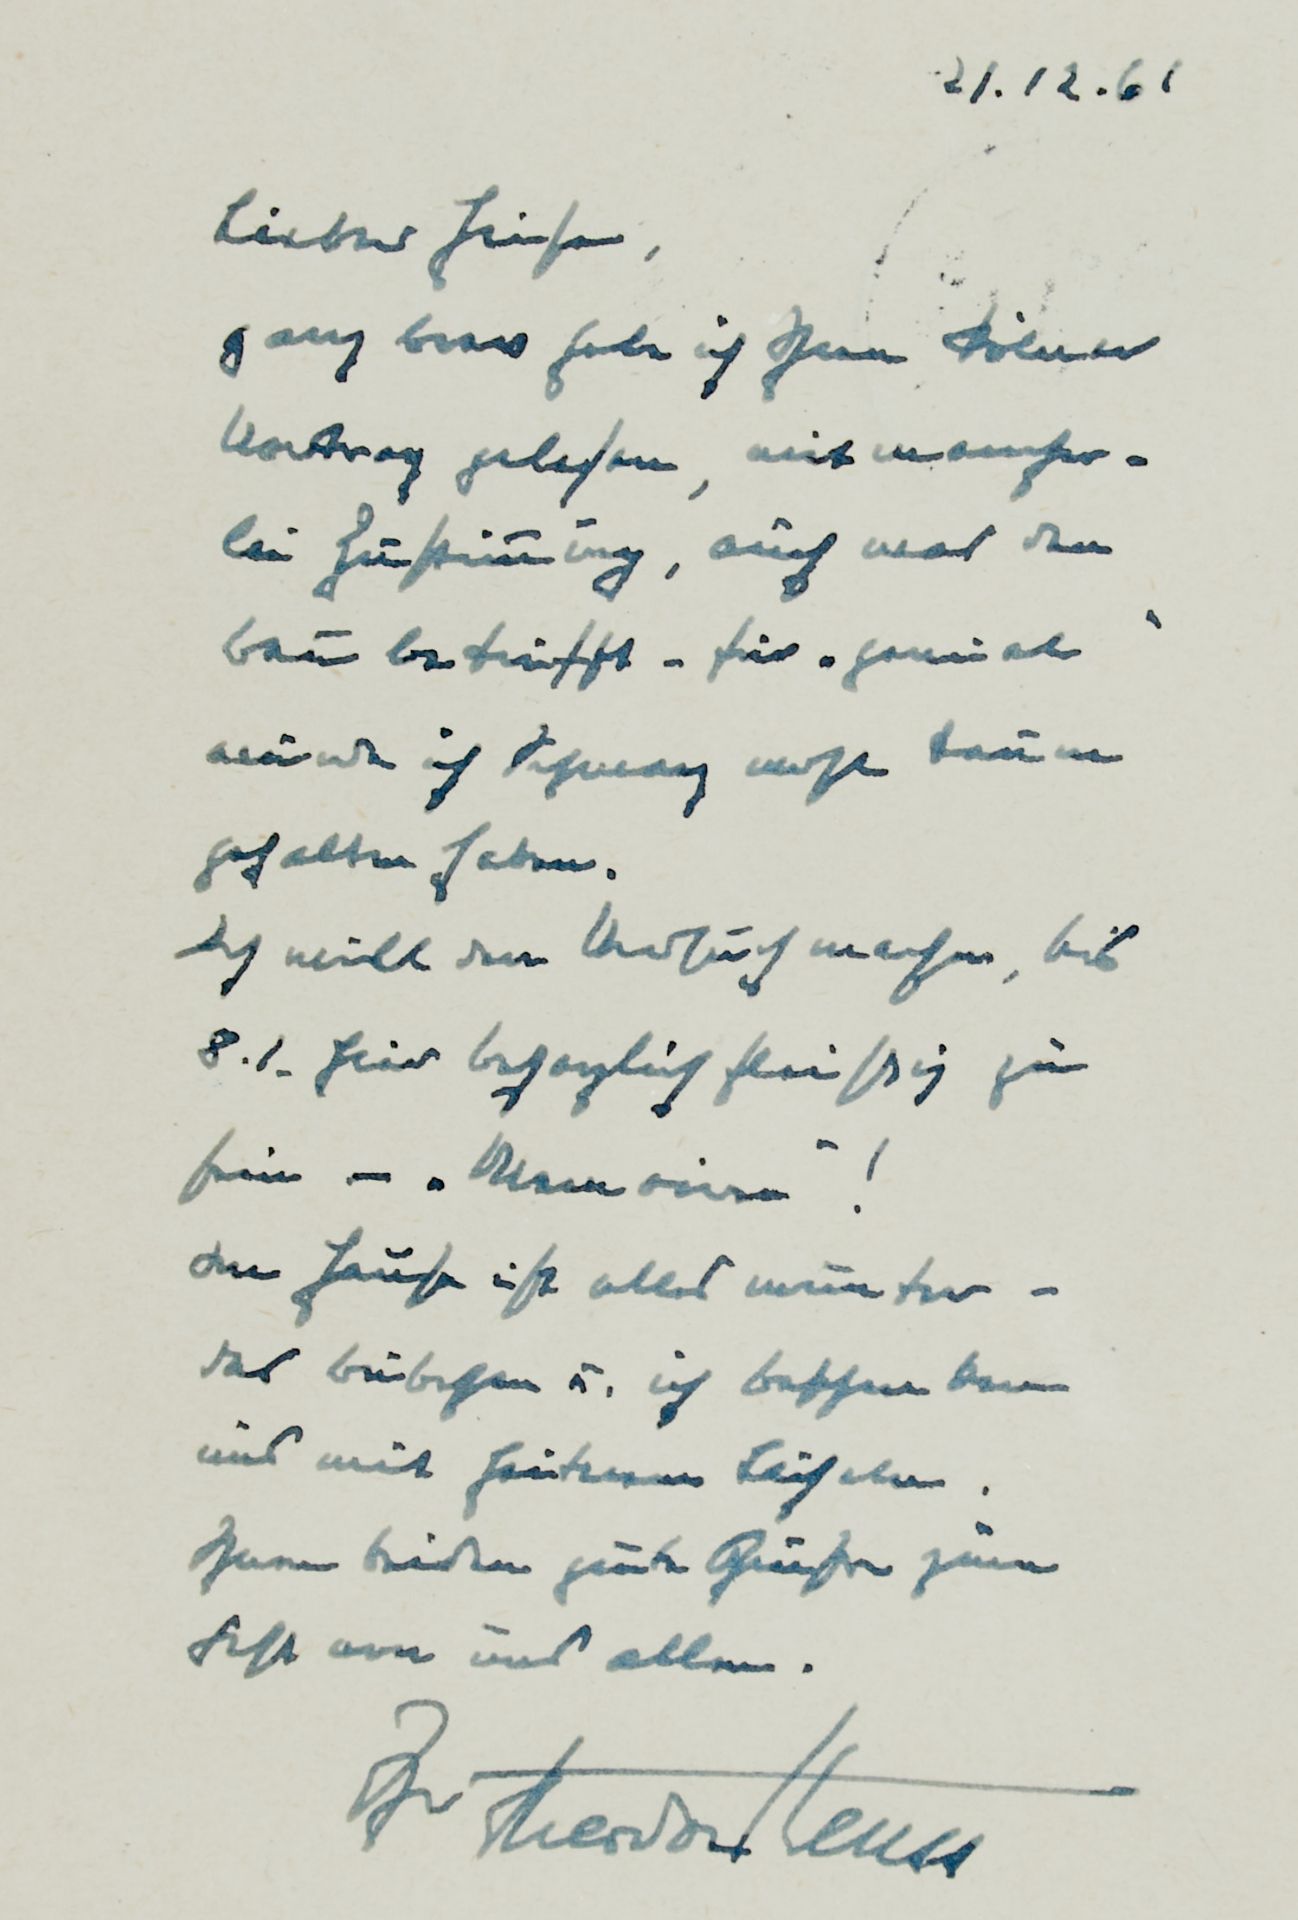 21.12.61
Lieber Heise,
ganz brav habe ich Ihren Kölner
Vortrag gelesen, mit mancher-
lei Zustimmung, auch was den
bau betrifft - für „genial“
würde ich Schwarz wohl kaum
gehalten haben.
Ich will den Versuch machen, bis
8.1. hier behaglich fleissig zu
sein — „Memoiren“!
Im Hause ist alles munter -
das bübchen u. ich
uns mit heiterem Lächeln.
Ihnen beiden gute Grüße zum
Fest von uns allen.
Ihr Theodor Heuss